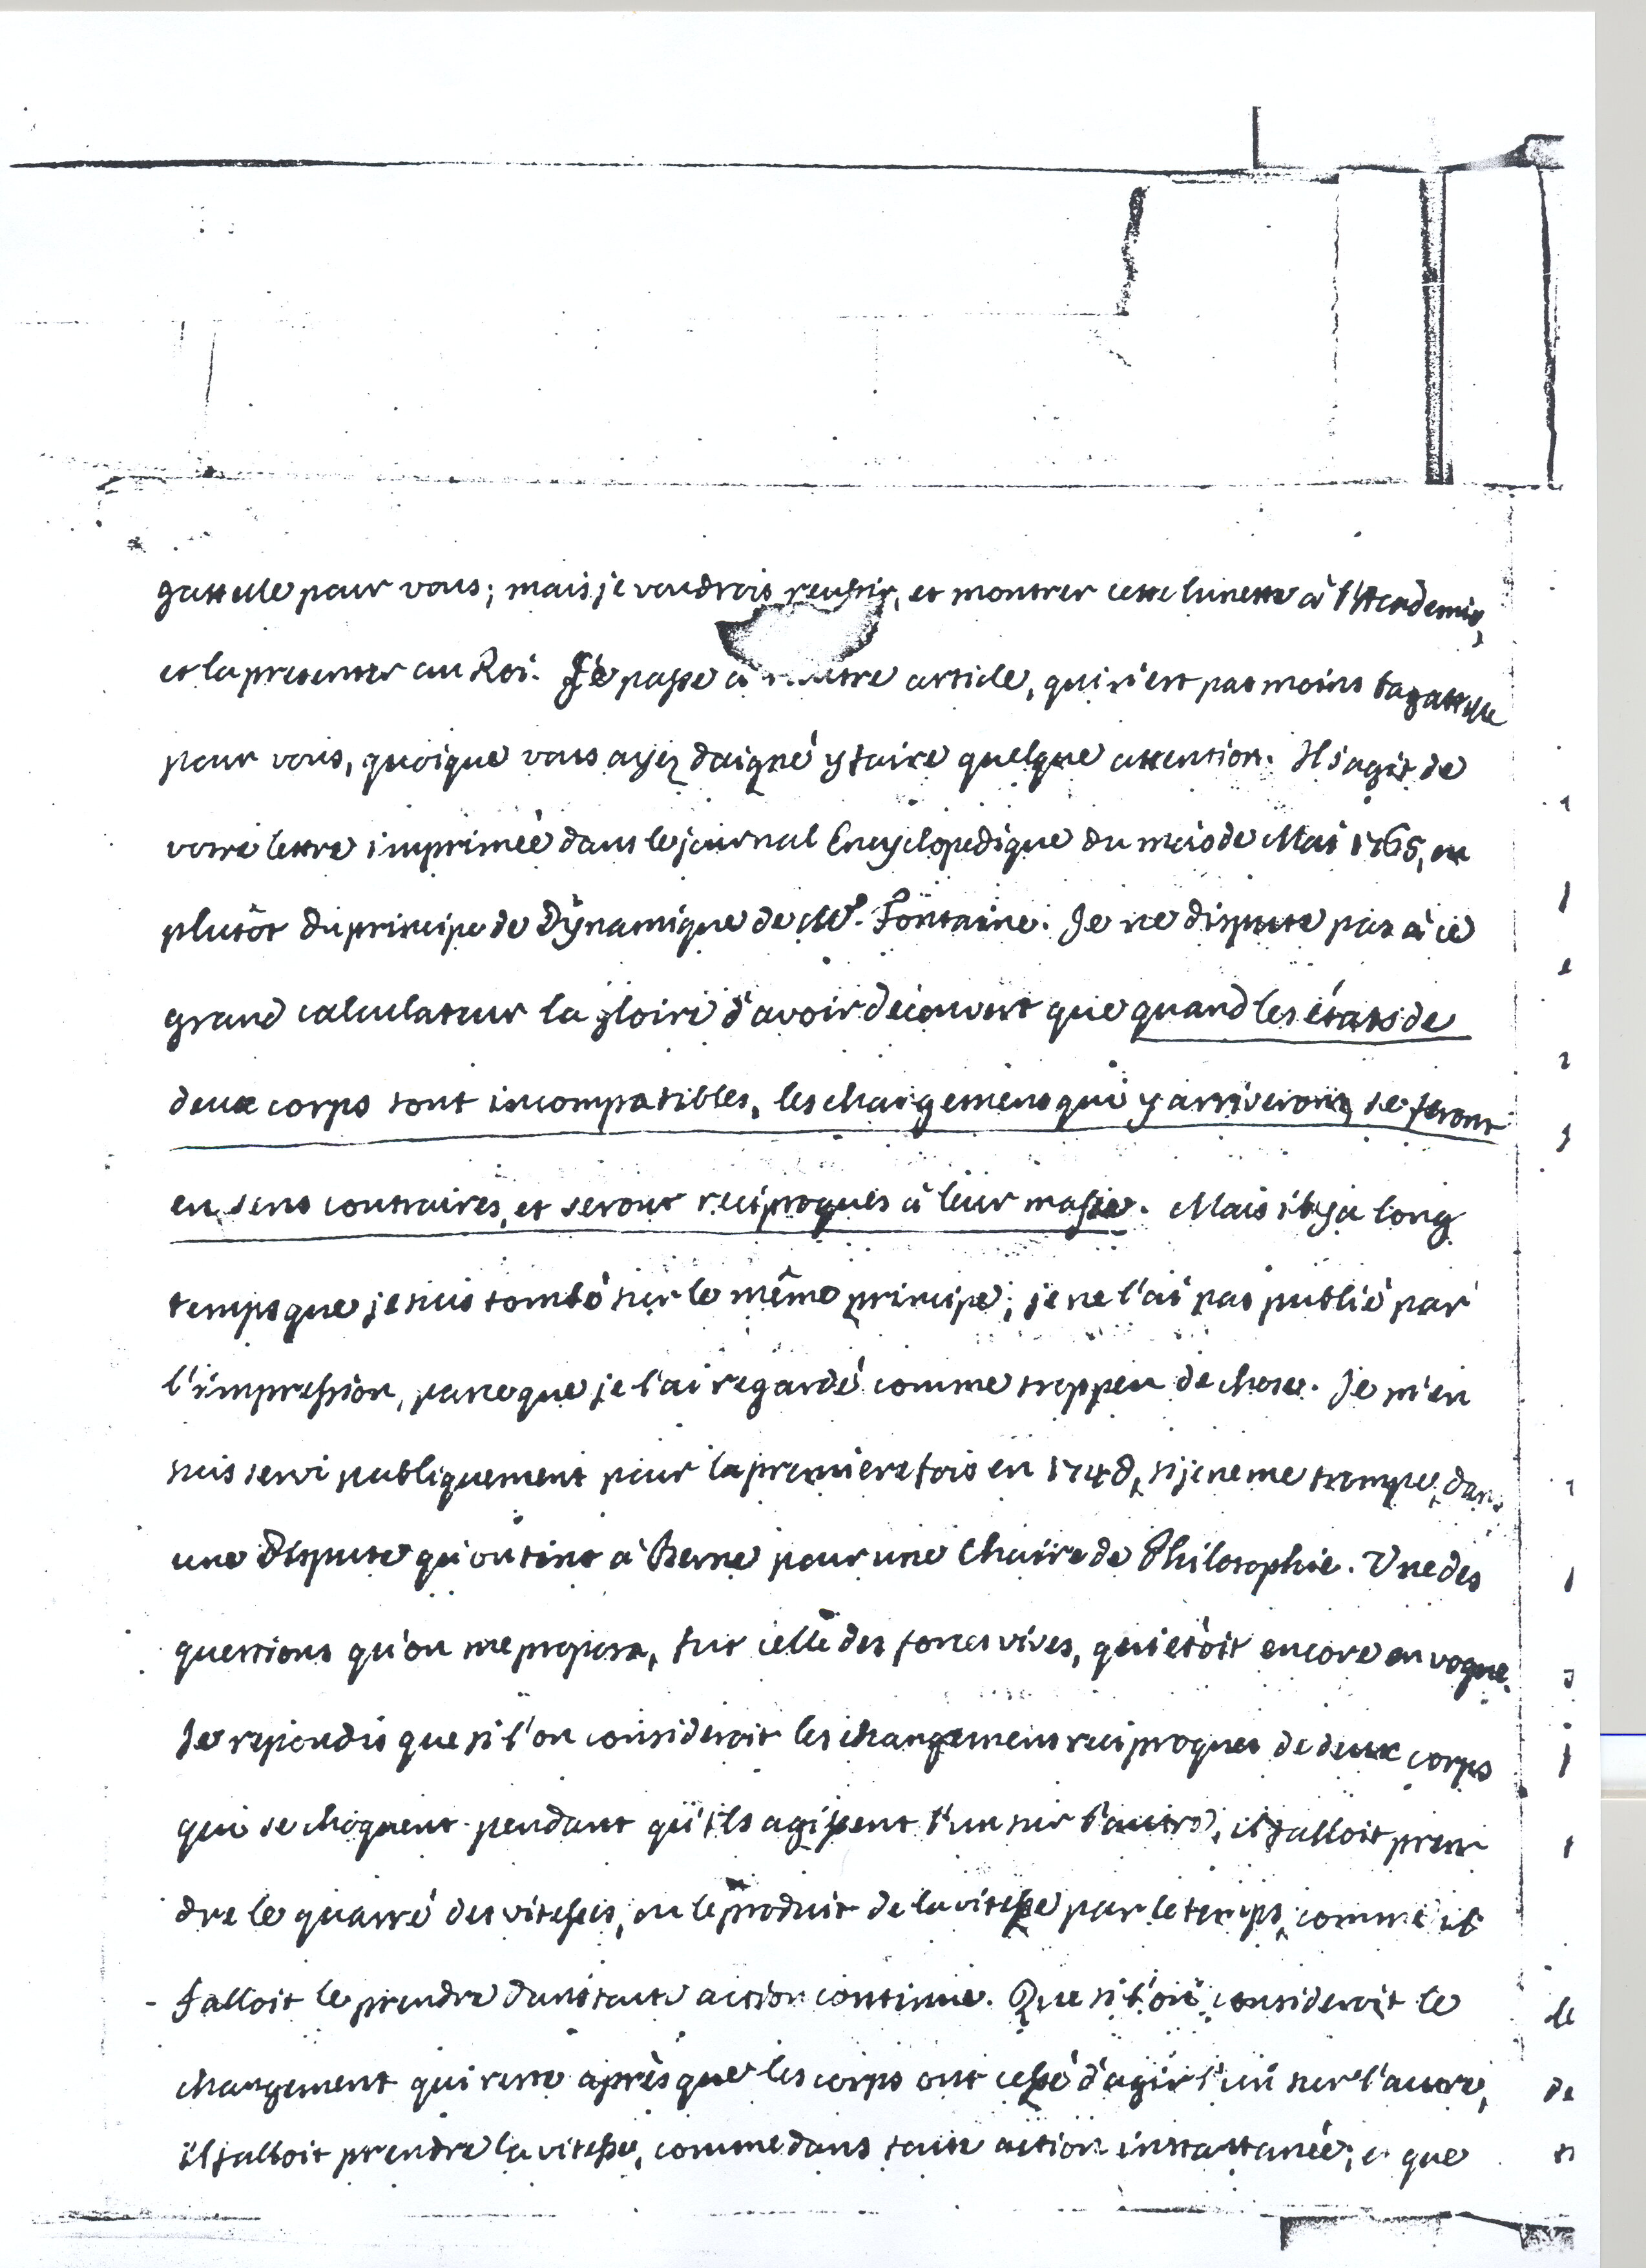 gattelle pour vous; mais je voudrois reussir, et montrer cette lunette à l'Academie,
et la presenter au Roi. Je passe à autre article, qui n'est pas moins bagattelle
pour vous, quoique vous ayez daigné y faire quelque attention. Il s'agit de
votre lettre imprimée dans le journal Encyclopedique du mois de Mai 1765, ou
plutôt du principe de Dynamique de Mr. Fontaine. Je ne dispute pas à ce
grand calculateur la gloire d'avoir decouvert que quand les états de
deux corps sont incompatibles, les changemens qui y arriveront se feront
en sens contraires, et seront reciproques à leur masse. Mais il y a long
temps que je suis tombé sur le même principe; je ne l'ai pas publié par
l'impression, parceque je l'ai regardé comme trop peu de chose. Je m'en
suis servi publiquement pour la premiere fois en 1748, si je ne me trompe, dans
une Dispute qu'on tint à Berne pour une Chaire de Philosophie. Une des
questions qu'on me proposa, fut celle des forces vives, qui etoit encore en vogue.
Je repondis que si l'on consideroit les changemens reciproques de deux corps
qui se choquent pendant qu'ils agissent l'un sur l'autre, il falloit pren
dre le quarré des vitesses, ou le produit de la vitesse par le temps, comme il
falloit le prendre dans toute action continue. Que si l'on consideroit le
changement qui reste après que les corps ont cessé d'agir l'un sur l'autre,
il falloit prendre la vitesse, comme dans toute action instantanée; et que